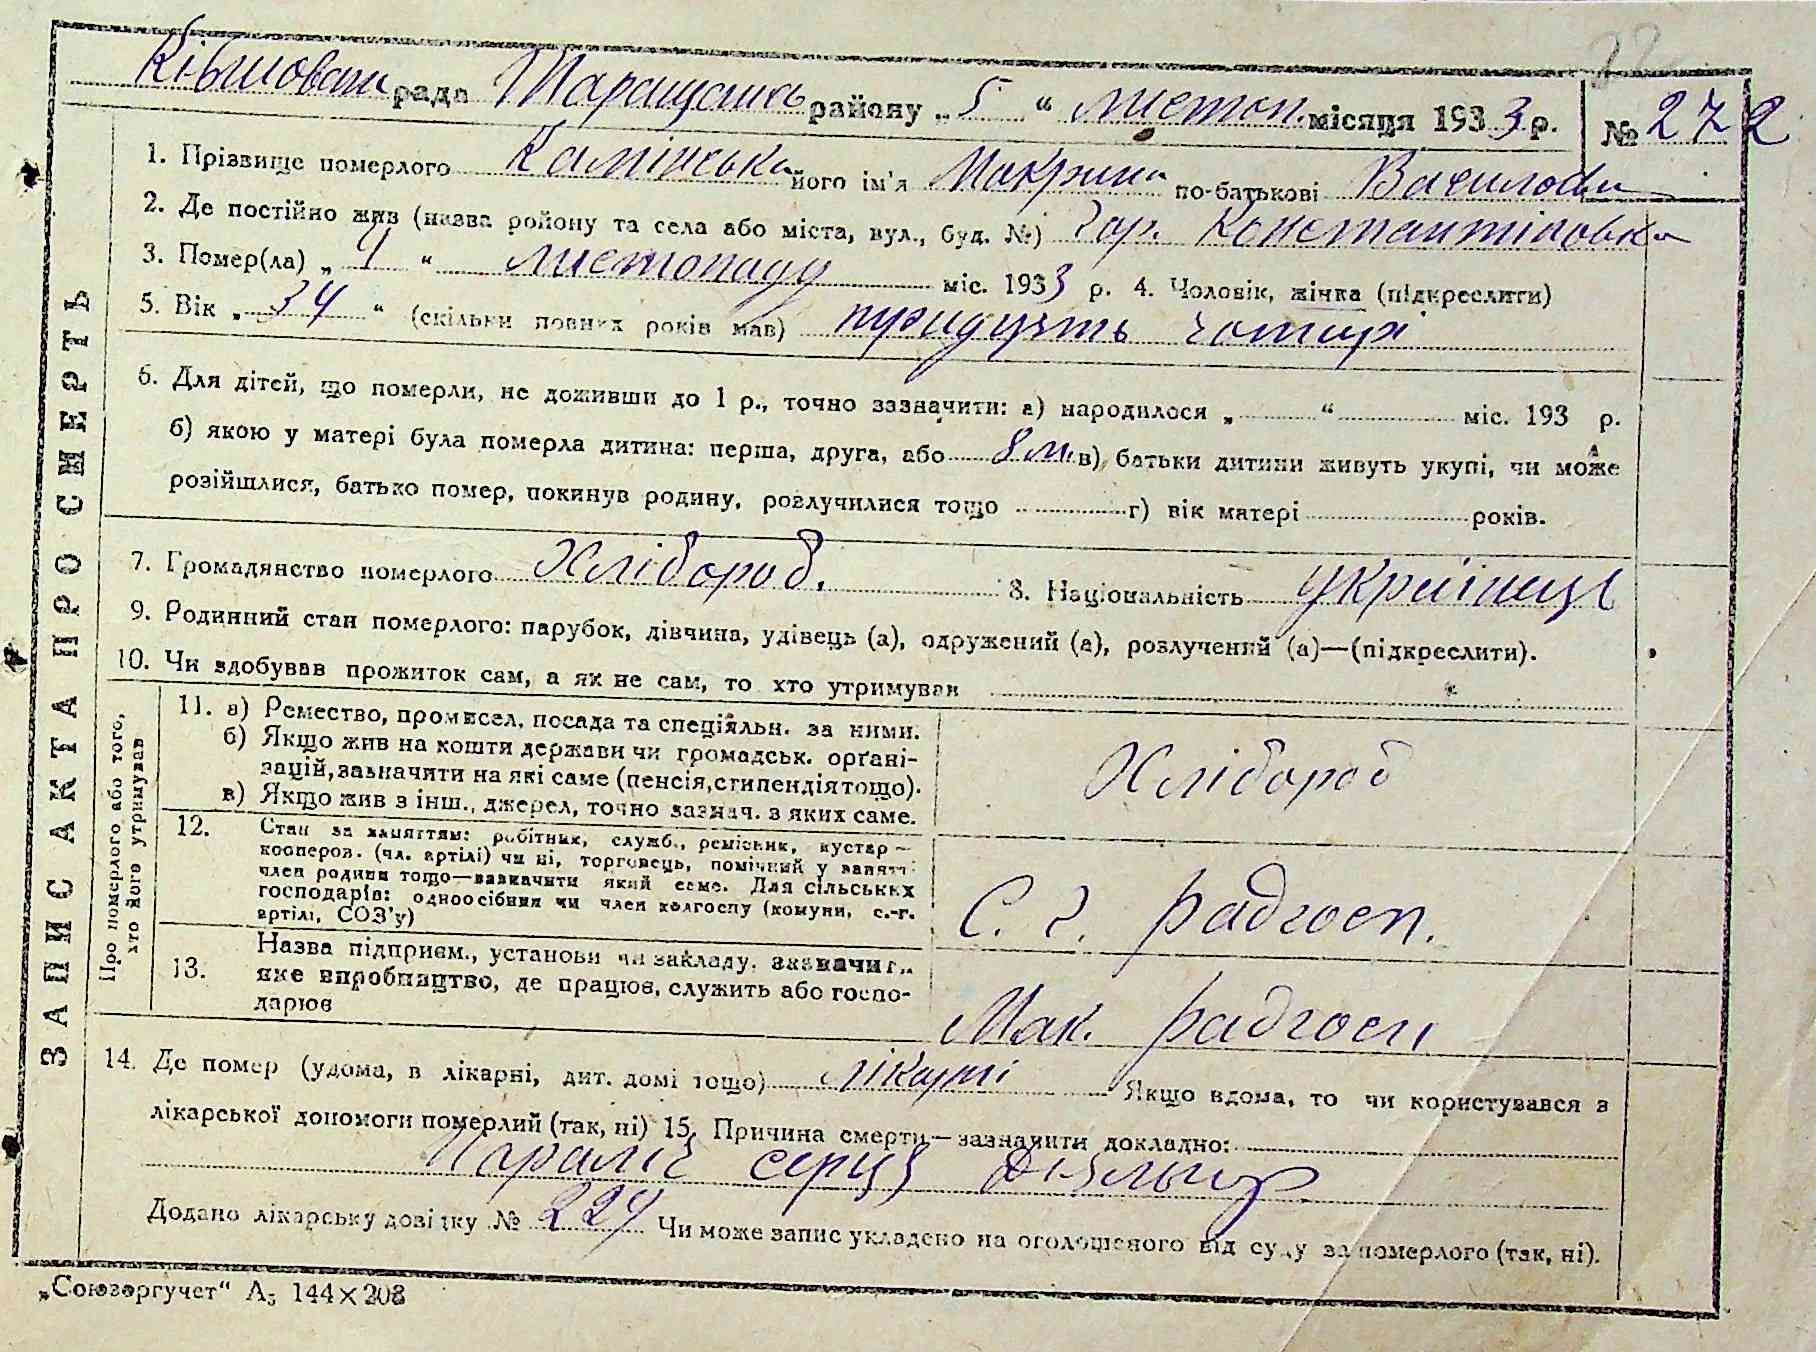 22
Ківшовати рада Таращансь району „5“ листоп. місяця 1933 р. № 272
ЗАПИС АКТА ПРО СМЕРТЬ
1. Прізвище померлого Камінська його ім'я Макрина по-батькові Василовн
2. Де постійно жив (назва ройону та села або міста, вул., буд. №) Гор. Константіновка
3. Помер(ла) „ 4 “ листопаду міс. 1933 р. 4. Чоловік, жінка (підкреслити)
5. Вік „ 34 “ (скільки повних років мав) тридцять чотирі
6. Для дітей, що померли, не доживши до 1 р., точно зазначити: а) народилося „ “ міс. 193 р.
б) якою у матері була померла дитина: перша, друга, або 8 м. в) батьки дитини живуть укупі, чи може
розійшлися, батько помер, покинув родину, розлучилися тощо г) вік матері років.
7. Громадянство померлого Хлібороб. 8. Національність українці
9. Родинний стан померлого: парубок, дівчина, удівець (а), одружений (а), розлучений (а)—(підкреслити).
10. Чи здобував прожиток сам, а як не сам, то хто утримував
Про померлого або того, хто його утримував
11. а) Ремество, промисел, посада та спеціяльн. за ними.
б) Якщо жив на кошти держави чи громадськ. орґані-
зацій, зазначити на які саме (пенсія, стипендія тощо).
в) Якщо жив з інш., джерел, точно зазнач. з яких саме.
Хлібороб
12. Стан за заняттям: робітник, служб., ремісник, кустар—
кооперов. (чл. артілі) чи ні, торговець, помічний у занятт
член родини тощо—зазначити який саме. Для сільських
господарів: одноосібник чи член колгоспу (комуни, с.-г.
артілі, СОЗ'у)
С. г. радгосп.
13. Назва підприєм., установи чи закладу, зазначит.,
яке виробництво, де працює, служить або госпо-
дарює
Мак. радгосп
14. Де помер (удома, в лікарні, дит. домі тощо) лікарні Якщо вдома, то чи користувався з
лікарської допомоги померлий (так, ні) 15. Причина смерти—зазначити докладно:
Параліч серця
Додано лікарську довідку № 224 Чи може запис укладено на оголошеного від суду за померлого (так, ні).
„Союзоргучет“ А₅ 144×208